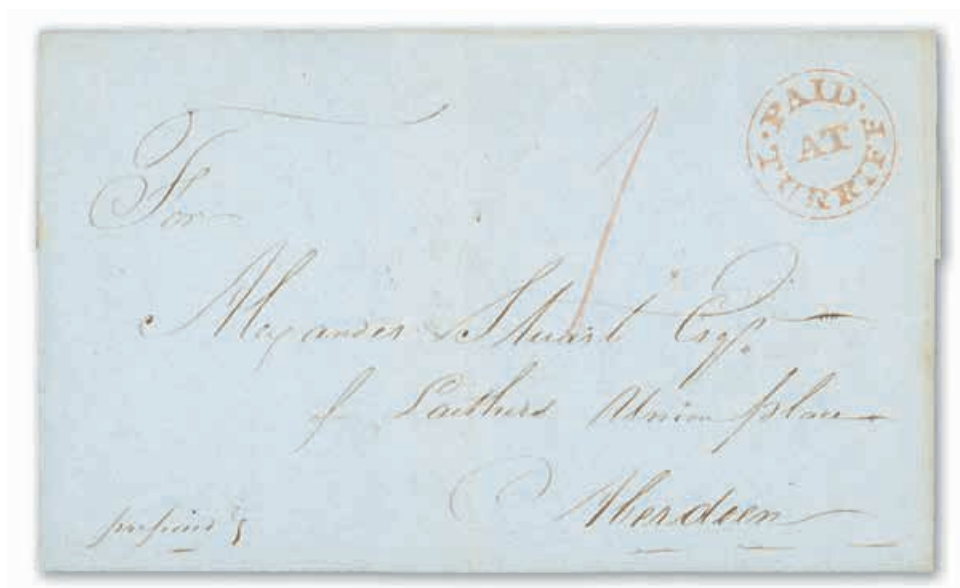 PAID AT TURRIFF
1
For
Alexander Stuart Esqr.
of Laithers Union place
Aberdeen
prepaid